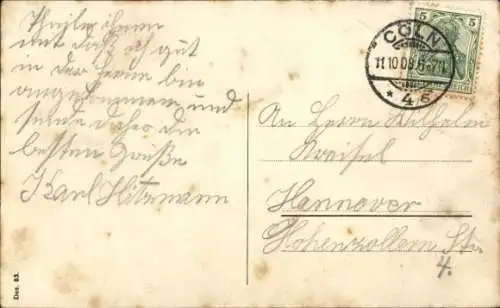 Theile ihnen
mit daß ich gut
in der Heime bin
angekommen und
sende daher die
besten Grüße
Karl Hitzmann
5 5
CÖLN
11.10.09.6-7N
* 4 e
An Herrn Wilhelm
Kreisel
Hannover
Hohenzollern Str.
4.
Des. 83.